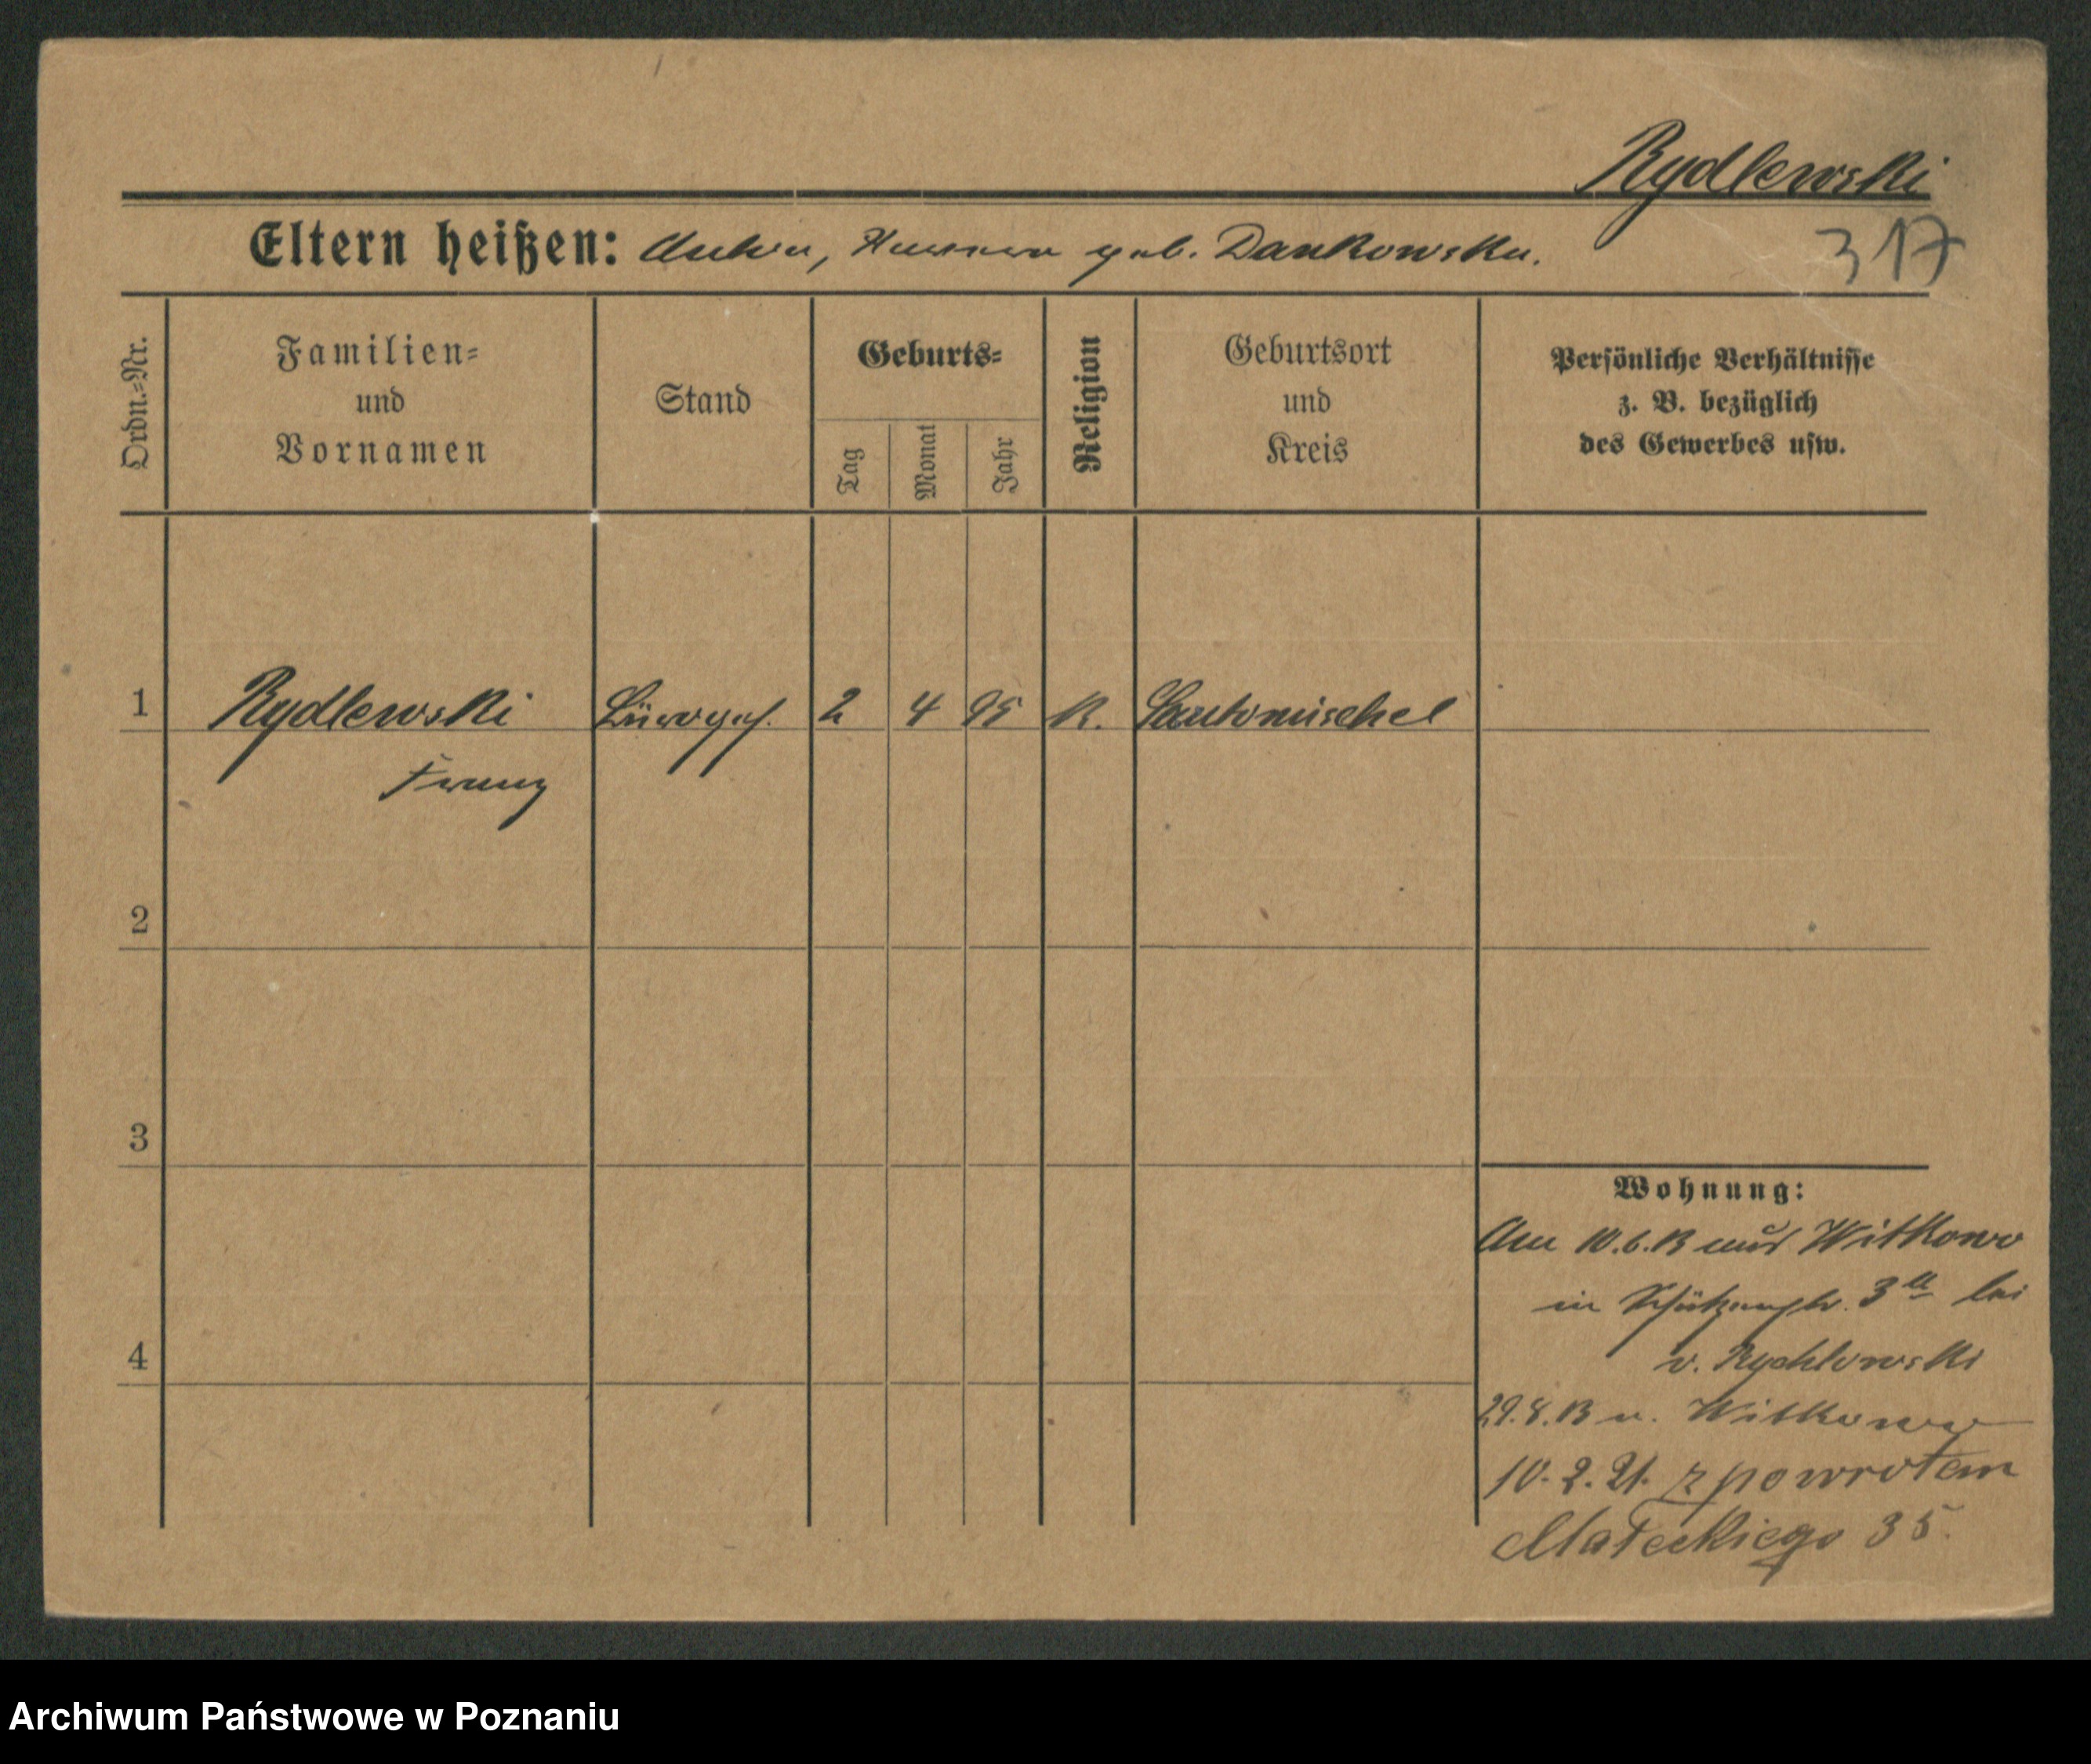 Rydlewski
317
Eltern heißen: Anton, geb. Dankowska.
Ordn.-Nr.
Familien-
und
Vornamen
Stand
Geburts-
Tag
Monat
Jahr
Religion
Geburtsort
und
Kreis
Persönliche Verhältnisse
z. B. bezüglich
des Gewerbes usw.
1 Rydlewski Bürogeh. 2 4 95 K. Santomischel
Franz
2
3
4
Wohnung:
Am 10.6.13 aus Witkowo
in Schützenstr. 3 II bei
v. Rychlowski
29.8.13 n. Witkowo
10.2.21. z powrotem
Małeckiego 35
Archiwum Państwowe w Poznaniu